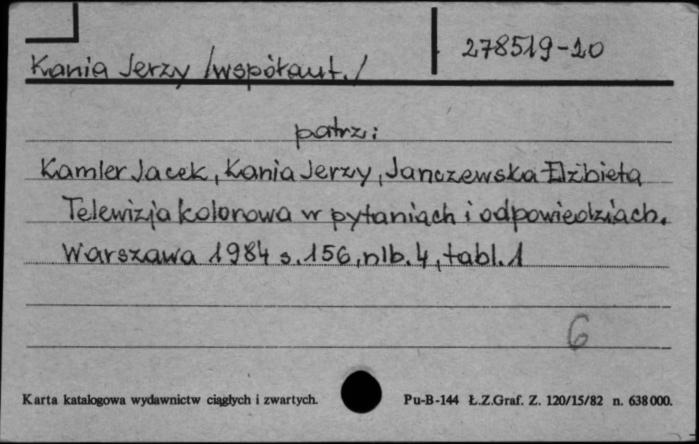 278519-20
Kania Jerzy /współaut./
patrz:
Kamler Jacek, Kania Jerzy, Janczewska Elżbieta
Telewizja kolorowa w pytaniach i odpowiedziach.
Warszawa 1984 s. 156, nlb. 4, tabl. 1
6
Karta katalogowa wydawnictw ciągłych i zwartych. Pu-B-144 Ł.Z.Graf. Z. 120/15/82 n. 638 000.